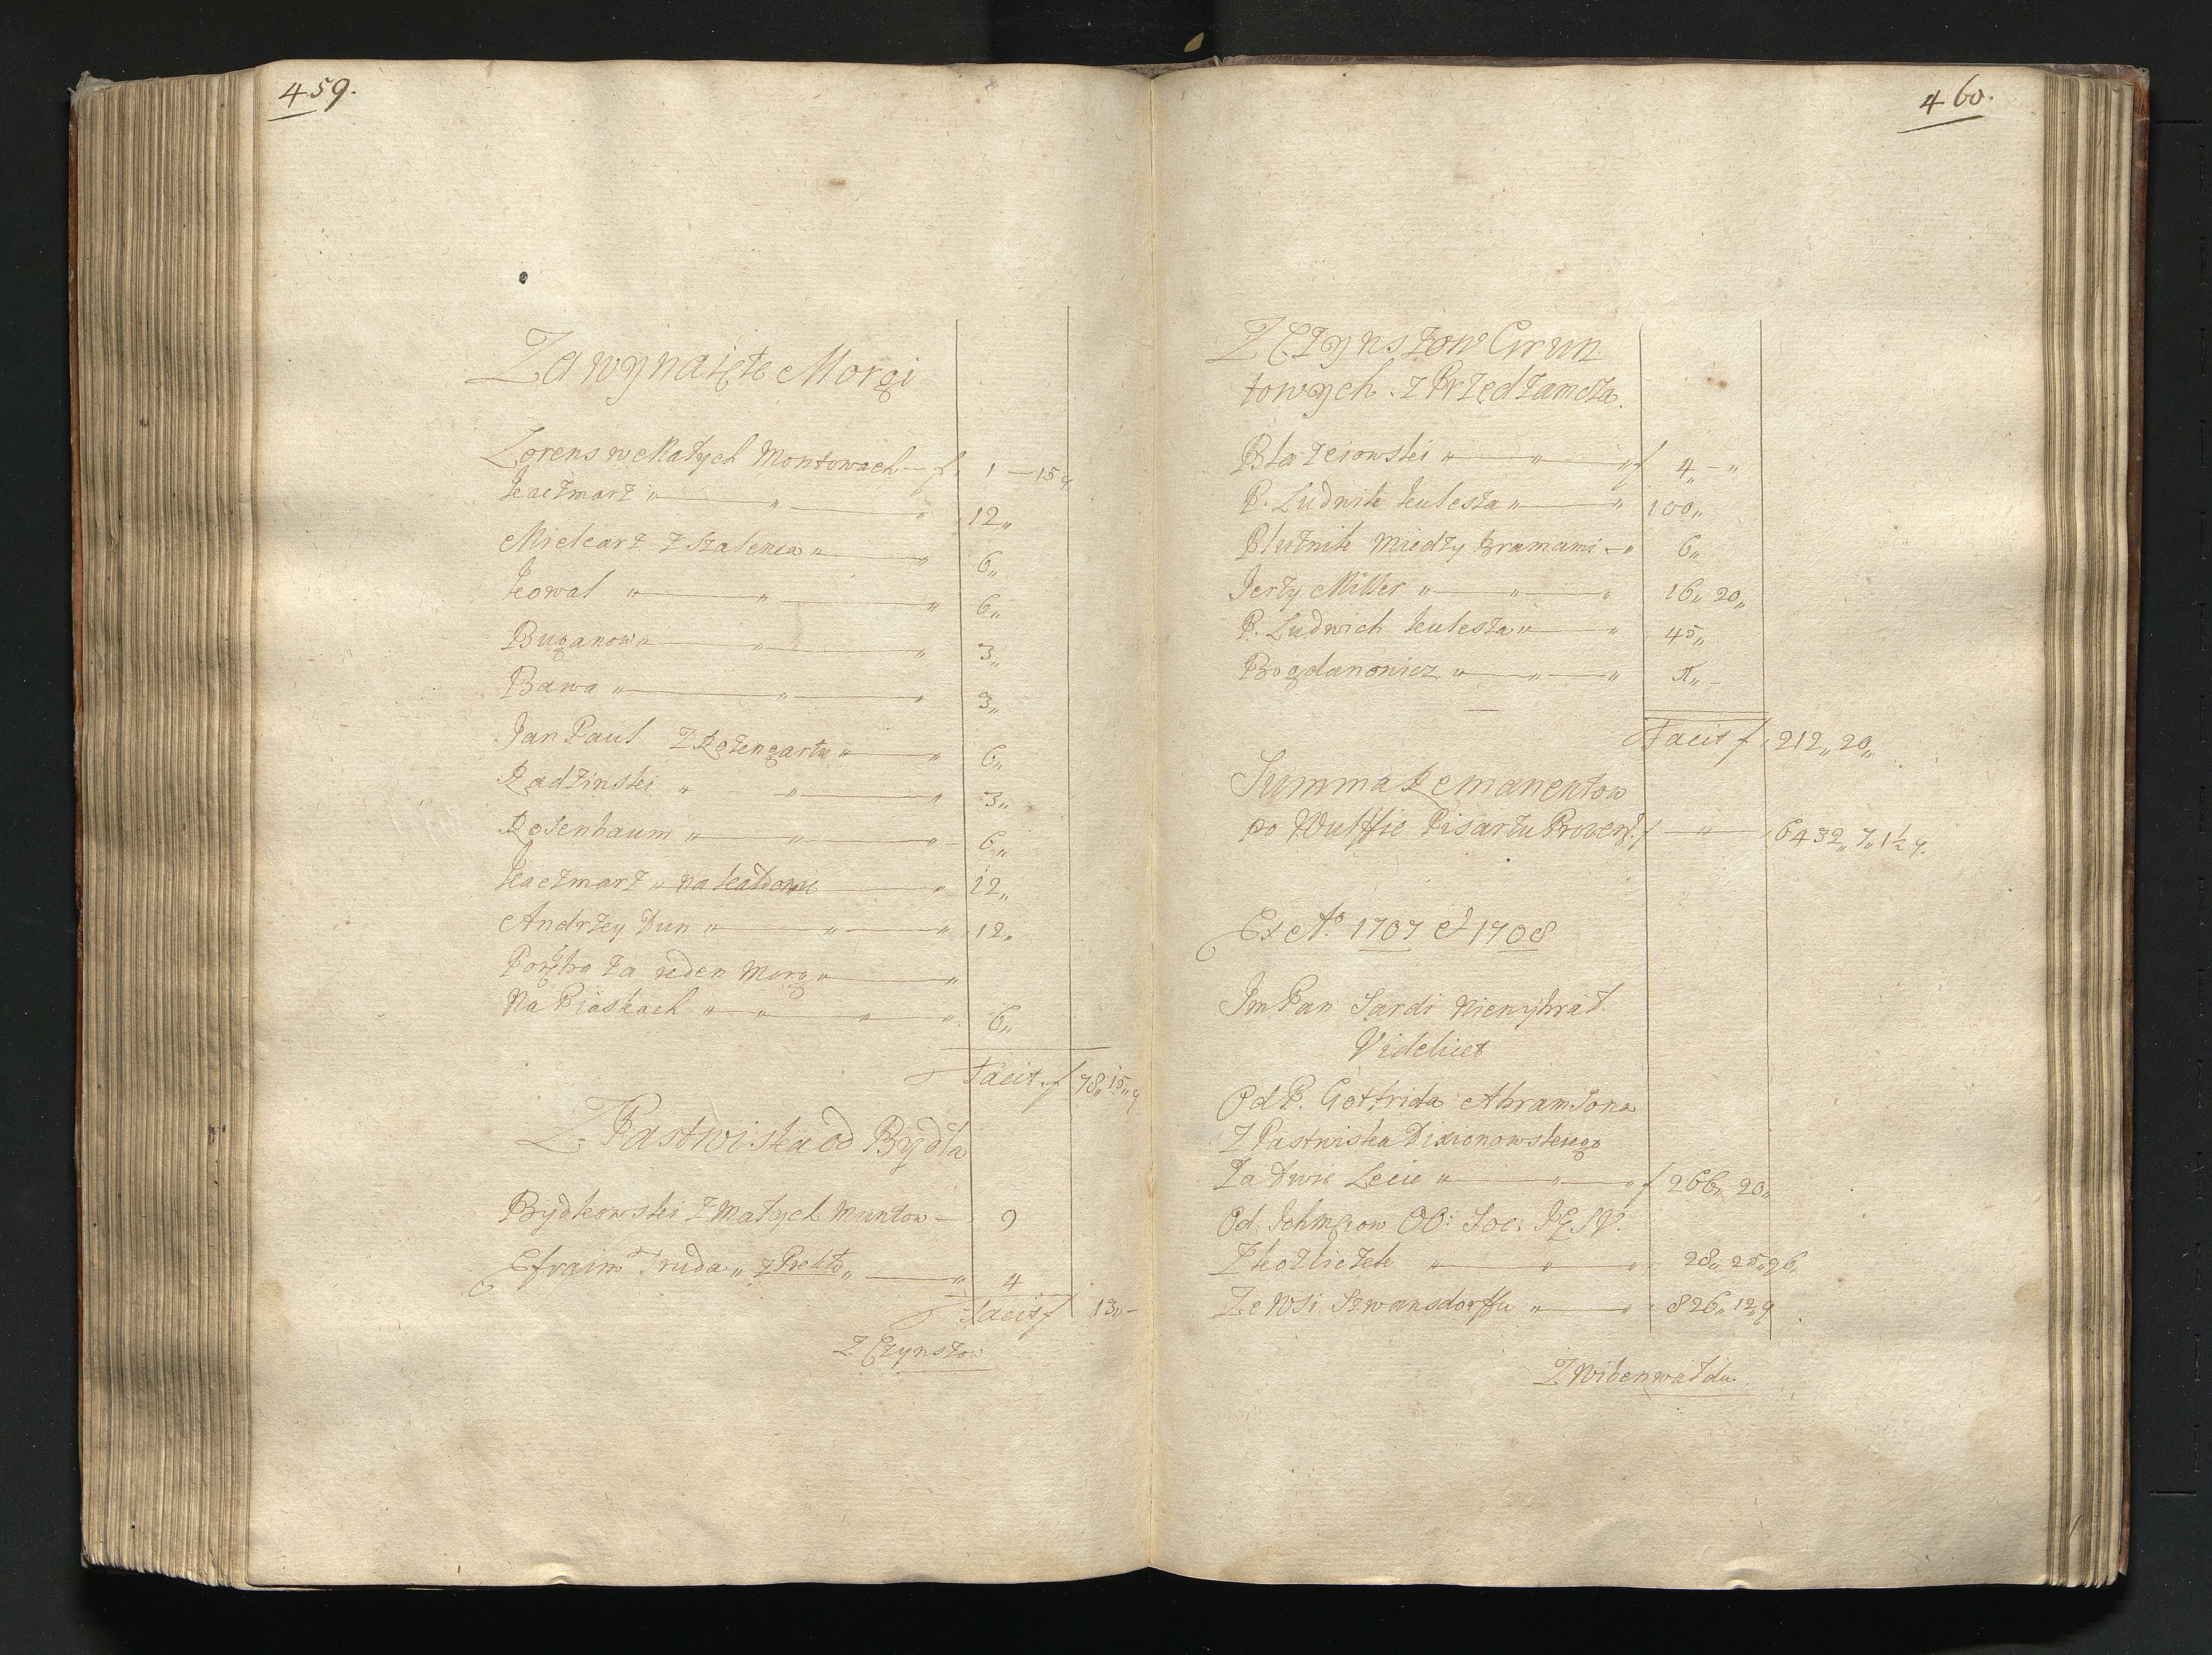 459.
Za wynaięte Morgi
Lorens w Małych Montowach — f. 1 — 15 q
Kaczmarz " — " — " 12"
Mielcarz z Szalenca " — " 6"
Kowal " — " — " 6"
Buganow " — " — " 3"
Bawa " — " — " 3"
Jan Paul z Rozengartu " — " 6"
Radzinski " — " — " 3"
Rosenbaum " — " — " 6"
Kaczmarz " na Kałdowie — " 12"
Andrzey Dun " — " — " 12"
Poręba za ieden Morg " — "
Na Piaskach " — " — " — " 6"
Facit f 78" 15" q
Z Pastwiska od Bydła
Brydkowski z Małych Muntow — 9
Efraim Truda " z " — " 4
Facit f 13" —
Z Czynszow
460.
Z Czynszow Grun
towych z Przedzamcza
Błażeiowski " — " — " f 4 — "
P. Ludwik Kulesza " — " 100"
Płużnik Miedzy Bramami — " 6"
Jerzy Miller " — " — " 16" 20"
P. Ludwich Kulesza " — " 45"
Bogdanowicz " — " — "
Facit f 212" 20"
Summa Remanentow
po Wulffie Pisarzu Prowent. f — " — 6432" 7" 1½ q.
Ex Aō 1707 et 1708
Im Pan Sardi Niewybrał
Videlicet
Od P. Gotfrida Abramsona
Z Pastwiska Dixionowskiego
Za dwie Lecie " — " — " f 266" 20"
Od OO: Soc: JESV.
Z Kozliczek " — " — " 28" 25" q 6"
Ze Wsi Szwansdorffu " — " 826" 12" q
Z Wibenwaldu